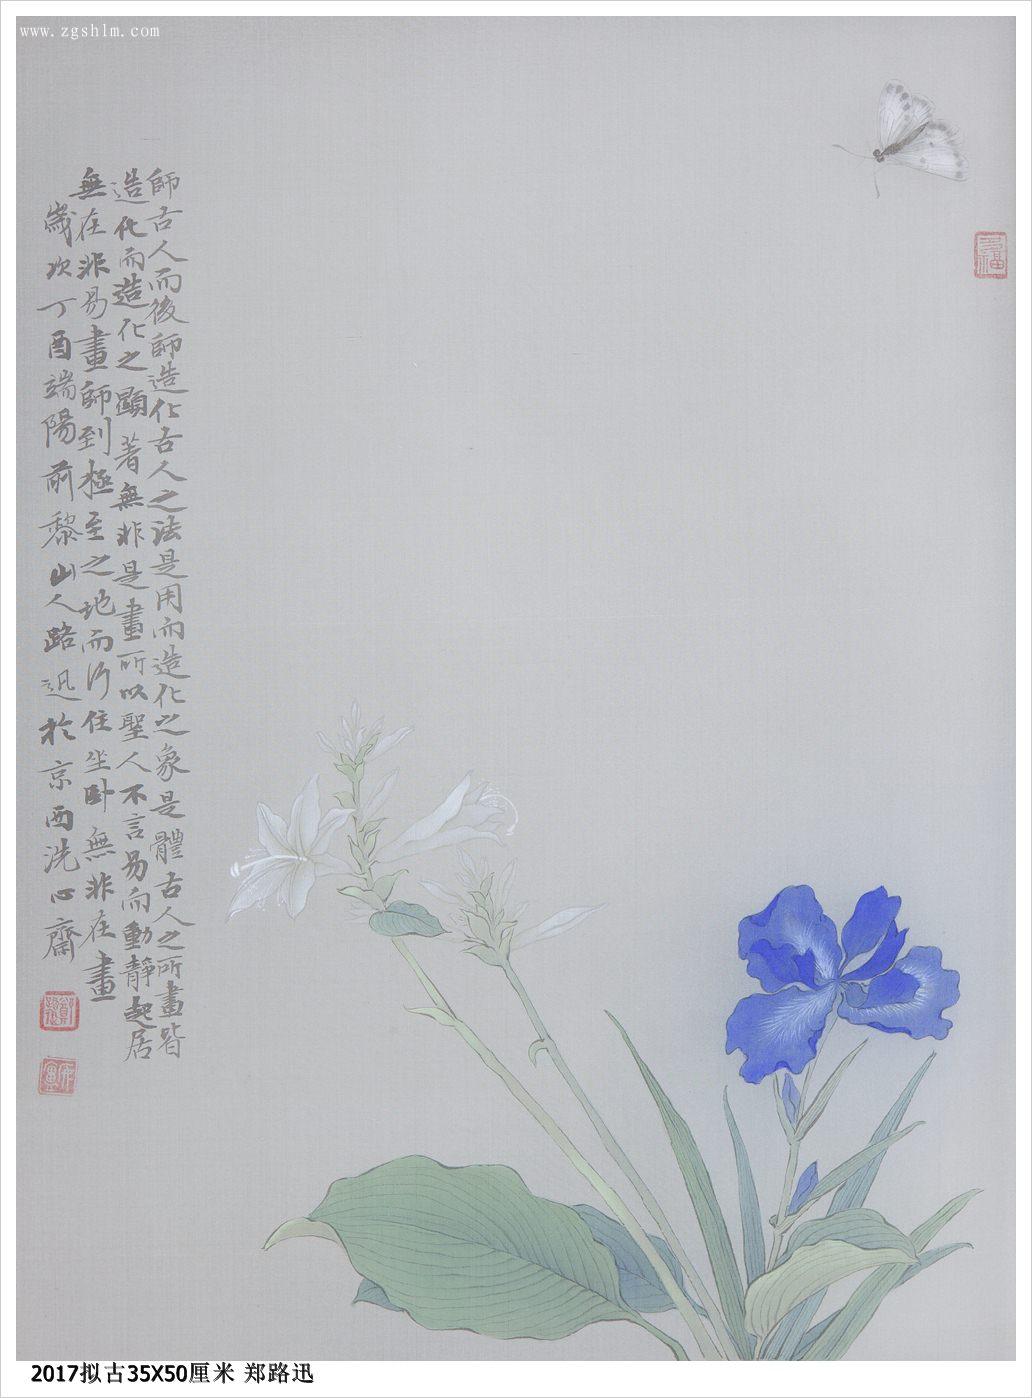 www.zgshlm.com
師古人而後師造化古人之法是用而造化之象是體古人之所畫皆
造化而造化之顯著無非是畫所以聖人不言易而動靜起居
無在非易畫師到極至之地而行住坐卧無非在畫
歲次丁酉端陽前黎山人路迅於京西洗心齋
2017拟古35X50厘米 郑路迅